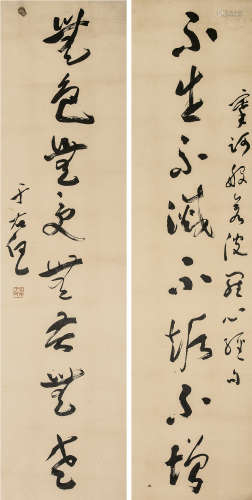 摩訶般若波羅心經句
不生不滅不垢不增
無色無受無苦無老
于右任